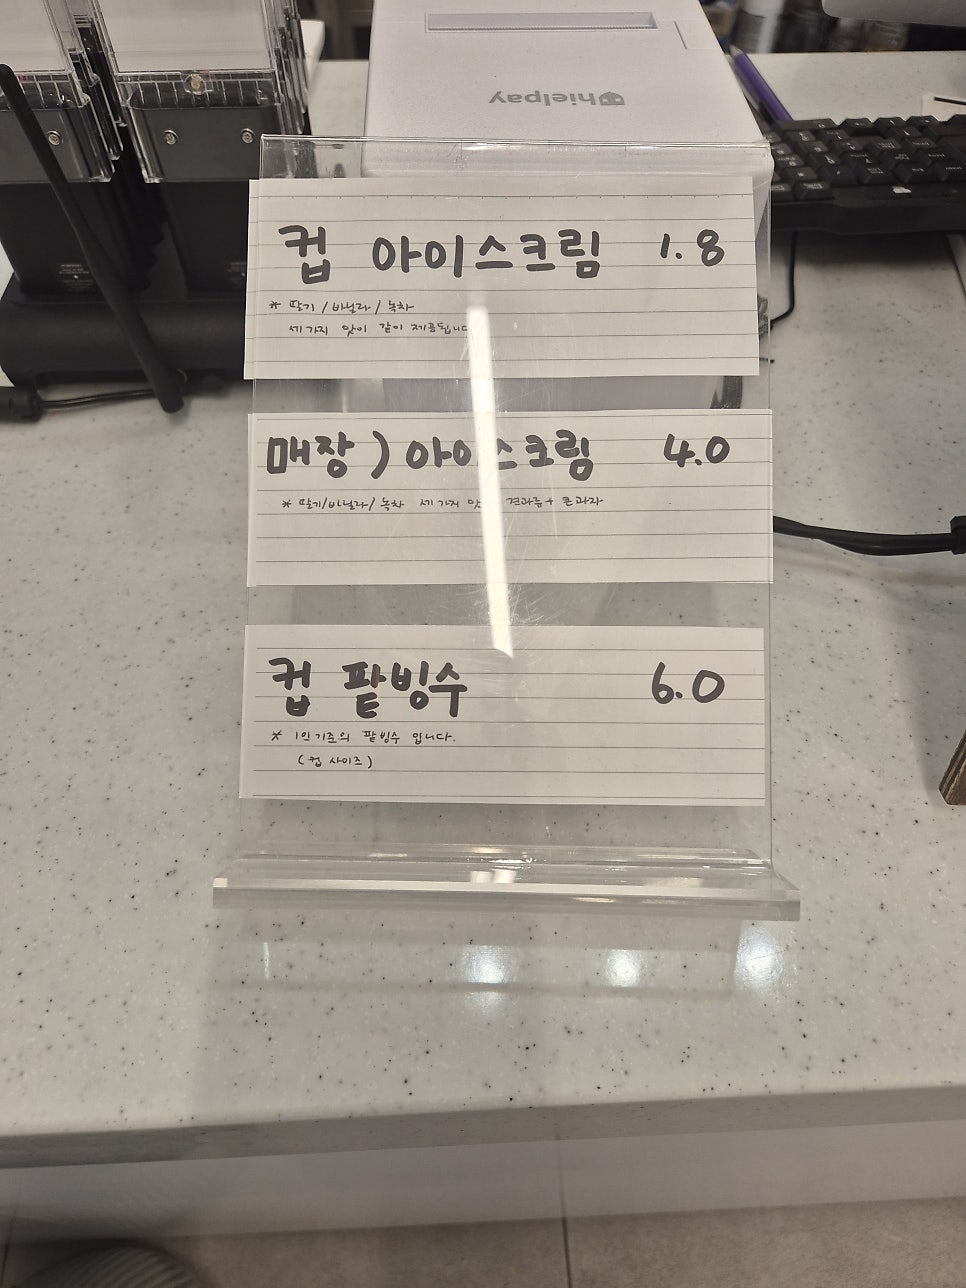 hielpay
컵 아이스크림 1.8
* 딸기/바닐라/녹차
세가지 맛이 같이 제공됩니다
매장) 아이스크림 4.0
* 딸기/바닐라/녹차 세가지 맛 견과류+콘과자
컵 팥빙수 6.0
* 1인기준의 팥빙수 입니다.
(컵 사이즈)